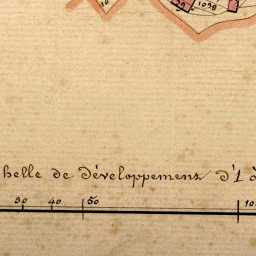 1038
helle de développement d'1 à
30 40 50 10